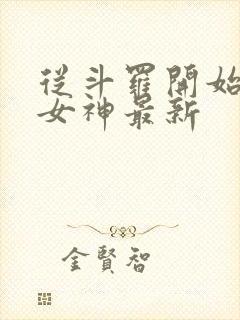 從斗羅開始
女神最新
金賢智